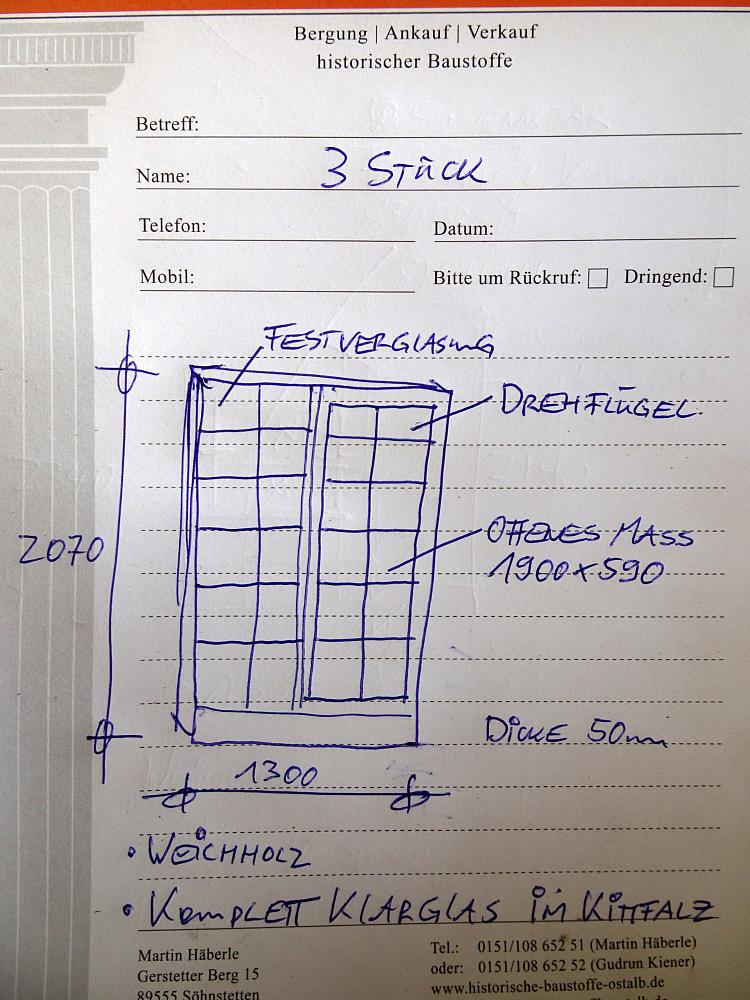 Bergung | Ankauf | Verkauf
historischer Baustoffe
Betreff:
Name: 3 STÜCK
Telefon: Datum:
Mobil: Bitte um Rückruf: Dringend:
FESTVERGLASUNG
DREHFLÜGEL
OFFENES MASS
1900x590
2070
DICKE 50mm
1300
• WEICHHOLZ
• KOMPLETT KLARGLAS IM KITTFALZ
Martin Häberle
Gerstetter Berg 15
89555 Söhnstetten
Tel.: 0151/108 652 51 (Martin Häberle)
oder: 0151/108 652 52 (Gudrun Kiener)
www.historische-baustoffe-ostalb.de